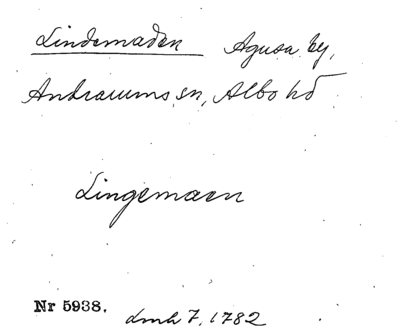 Lindemaden Agusa by,
Andrarums sn, Albo hd
Lingemaen
Nr 5938. dmh 7, 1782